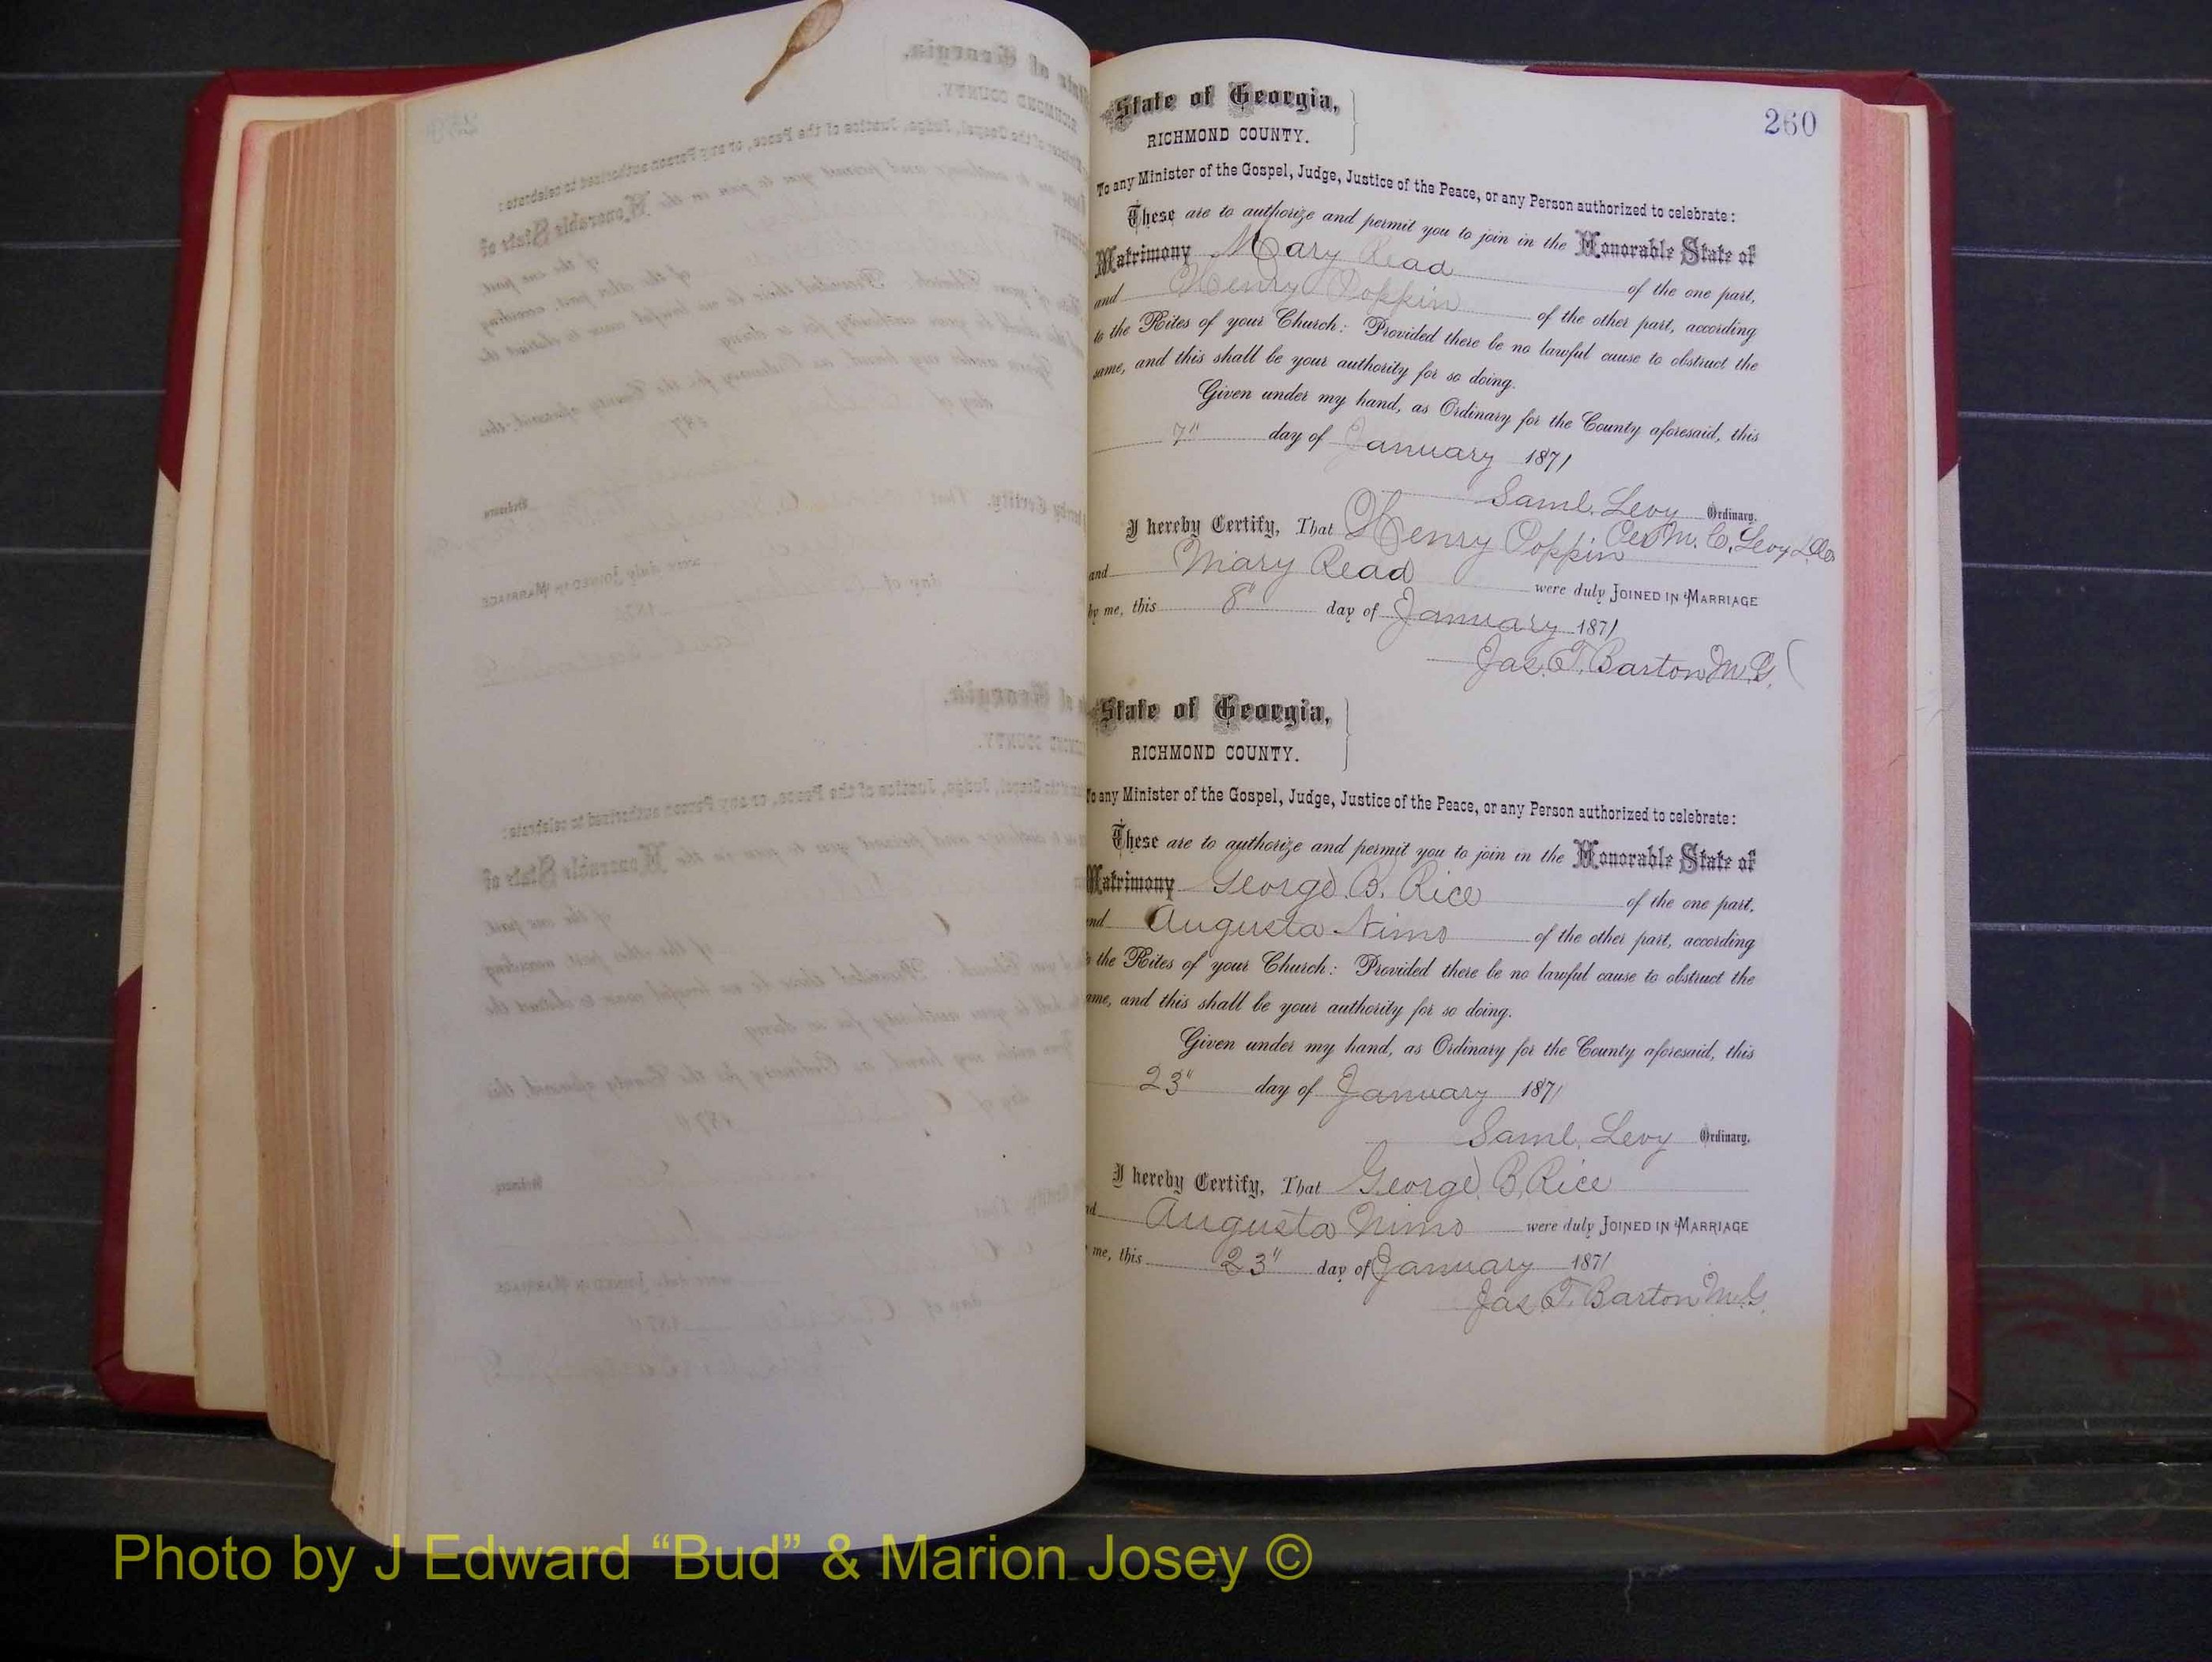 260
State of Georgia,
RICHMOND COUNTY.
To any Minister of the Gospel, Judge, Justice of the Peace, or any Person authorized to celebrate:
These are to authorize and permit you to join in the Honorable State of
Matrimony Mary Read of the one part,
and Henry Poppin of the other part, according
to the Rites of your Church: Provided there be no lawful cause to obstruct the
same, and this shall be your authority for so doing.
Given under my hand, as Ordinary for the County aforesaid, this
7" day of January 1871
Saml. Levy Ordinary.
M. C. Levy
I hereby Certify, That Henry Poppin
and Mary Read were duly JOINED IN MARRIAGE
by me, this 8" day of January 1871
Jas. T. Barton M.G.
State of Georgia,
RICHMOND COUNTY.
To any Minister of the Gospel, Judge, Justice of the Peace, or any Person authorized to celebrate:
These are to authorize and permit you to join in the Honorable State of
Matrimony George B. Rice of the one part,
and Augusta Nimo of the other part, according
to the Rites of your Church: Provided there be no lawful cause to obstruct the
same, and this shall be your authority for so doing.
Given under my hand, as Ordinary for the County aforesaid, this
23" day of January 1871
Saml. Levy Ordinary.
I hereby Certify, That George B. Rice
and Augusta Nimo were duly JOINED IN MARRIAGE
me, this 23" day of January 1871
Jas. T. Barton M.G.
Photo by J Edward “Bud” & Marion Josey ©